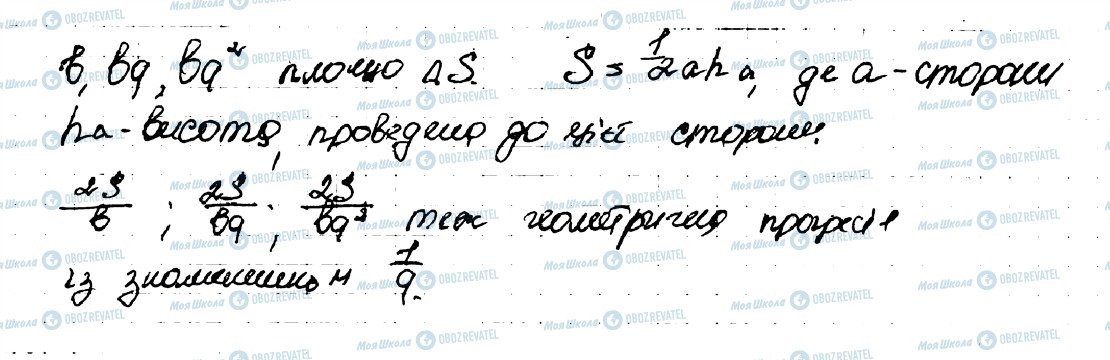 b, bq, bq² площа ΔS. S = 1/2 ah a, де a - сторони
ha - висота, проведена до цієї сторони.
2S/b ; 2S/bq ; 2S/bq² теж геометрична прогресія
із знаменником 1/q.